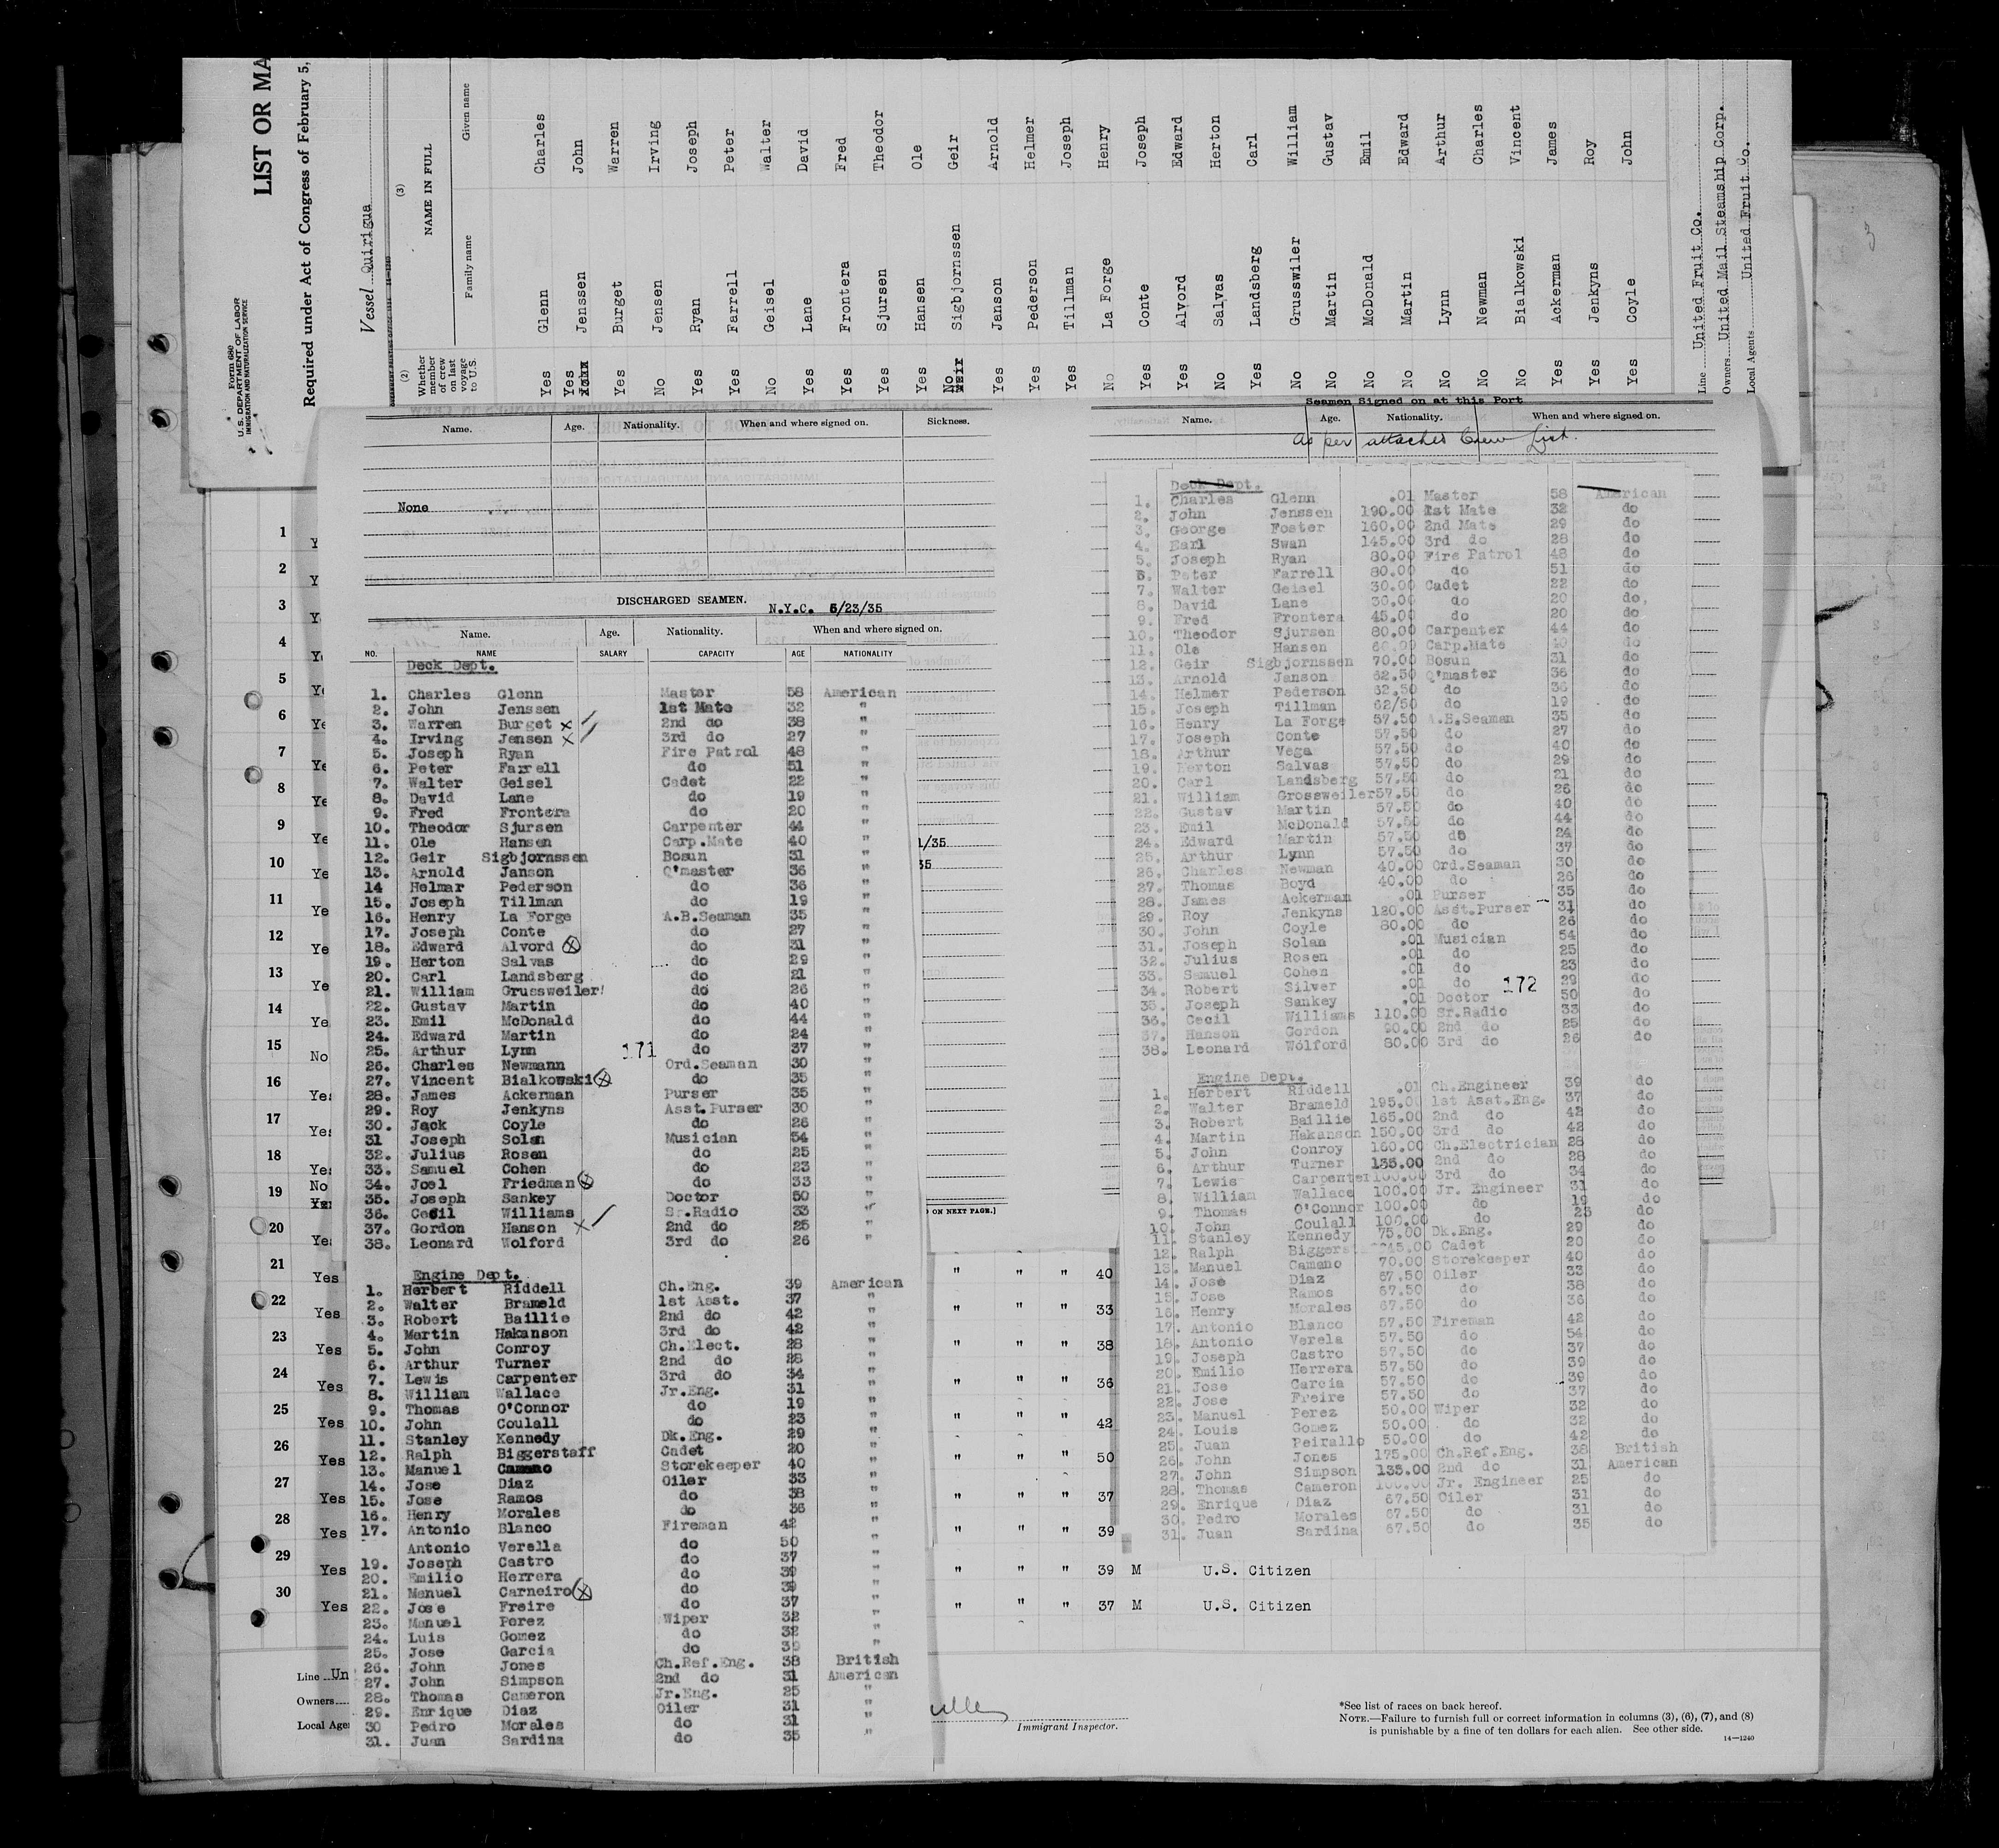 Form 680
U.S. DEPARTMENT OF LABOR
IMMIGRATION AND NATURALIZATION SERVICE
LIST OR MA
Required under Act of Congress of February 5,
Vessel Quirigua
(2)
Whether member of crew on last voyage to U.S.
(3)
NAME IN FULL
Family name Given name
Yes Glenn Charles
Yes Jenssen John
Yes Burget Warren
No Jensen Irving
Yes Ryan Joseph
Yes Farrell Peter
No Geisel Walter
Yes Lane David
Yes Frontera Fred
Yes Sjursen Theodor
Yes Hansen Ole
No Sigbjornssen Geir
Yes Janson Arnold
Yes Pederson Helmer
Yes Tillman Joseph
No La Forge Henry
Yes Conte Joseph
Yes Alvord Edward
No Salvas Herton
Yes Landsberg Carl
No Grusswiler William
No Martin Gustav
No McDonald Emil
No Martin Edward
No Lynn Arthur
No Newman Charles
No Bialkowski Vincent
Yes Ackerman James
Yes Jenkyns Roy
Yes Coyle John
Line United Fruit Co.
Owners United Mail Steamship Corp.
Local Agents United Fruit Co.
Name. Age. Nationality. When and where signed on. Sickness.
None
DISCHARGED SEAMEN. N.Y.C. 5/23/35
Name. Age. Nationality. When and where signed on.
NO. NAME SALARY CAPACITY AGE NATIONALITY
Deck Dept.
1. Charles Glenn Master 58 American
2. John Jenssen 1st Mate 32 "
3. Warren Burget x 2nd do 38 "
4. Irving Jensen x 3rd do 27 "
5. Joseph Ryan Fire Patrol 48 "
6. Peter Farrell do 51 "
7. Walter Geisel Cadet 22 "
8. David Lane do 19 "
9. Fred Frontera do 20 "
10. Theodor Sjursen Carpenter 44 "
11. Ole Hansen Carp.Mate 40 "
12. Geir Sigbjornssen Bosun 31 "
13. Arnold Janson Q'master 36 "
14 Helmar Pederson do 36 "
15. Joseph Tillman do 19 "
16. Henry La Forge A.B.Seaman 35 "
17. Joseph Conte do 27 "
18. Edward Alvord x do 31 "
19. Herton Salvas do 29 "
20. Carl Landsberg do 21 "
21. William Grussweiler do 26 "
22. Gustav Martin do 40 "
23. Emil McDonald do 44 "
24. Edward Martin do 24 "
25. Arthur Lynn 171 do 37 "
26. Charles Newmann Ord.Seaman 30 "
27. Vincent Bialkowski x do 35 "
28. James Ackerman Purser 35 "
29. Roy Jenkyns Asst.Purser 30 "
30. Jack Coyle do 26 "
31 Joseph Solan Musician 54 "
32. Julius Rosen do 25 "
33. Samuel Cohen do 23 "
34. Joel Friedman x do 33 "
35. Joseph Sankey Doctor 50 "
36. Cecil Williams Sr.Radio 33 "
37. Gordon Hanson x 2nd do 25 "
38. Leonard Wolford 3rd do 26 "
Engine Dept.
1. Herbert Riddell Ch.Eng. 39 American
2. Walter Brameld 1st Asst. 37 "
3. Robert Baillie 2nd do 42 "
4. Martin Hakanson 3rd do 42 "
5. John Conroy Ch.Elect. 28 "
6. Arthur Turner 2nd do 28 "
7. Lewis Carpenter 3rd do 34 "
8. William Wallace Jr.Eng. 31 "
9. Thomas O'Connor do 19 "
10. John Coulall do 23 "
11. Stanley Kennedy Dk.Eng. 29 "
12. Ralph Biggerstaff Cadet 20 "
13. Manuel Camano Storekeeper 40 "
14. Jose Diaz Oiler 33 "
15. Jose Ramos do 38 "
16. Henry Morales do 36 "
17. Antonio Blanco Fireman 42 "
Antonio Verella do 50 "
19. Joseph Castro do 37 "
20. Emilio Herrera do 39 "
21. Manuel Carneiro x do 39 "
22. Jose Freire do 37 "
23. Manuel Perez Wiper 32 "
24. Luis Gomez do 32 "
25. Jose Garcia do 39 "
26. John Jones Ch.Ref.Eng. 38 British
27. John Simpson 2nd do 31 American
28. Thomas Cameron Jr.Eng. 25 "
29. Enrique Diaz Oiler 31 "
30 Pedro Morales do 31 "
31. Juan Sardina do 35 "
Seamen Signed on at this Port
Name. Age. Nationality. When and where signed on.
As per attached Crew List.
Deck Dept.
1. Charles Glenn .01 Master 58 American
2. John Jenssen 190.00 1st Mate 32 do
3. George Foster 160.00 2nd Mate 29 do
4. Earl Swan 145.00 3rd do 28 do
5. Joseph Ryan 80.00 Fire Patrol 48 do
6. Peter Farrell 80.00 do 51 do
7. Walter Geisel 30.00 Cadet 22 do
8. David Lane 30.00 do 20 do.
9. Fred Frontera 45.00 do 20 do
10. Theodor Sjursen 80.00 Carpenter 44 do
11. Ole Hansen Carp.Mate 40 do
12. Geir Sigbjornssen 70.00 Bosun 31 do
13. Arnold Janson 62.50 Q'master 36 do
14. Helmer Pederson 62.50 do 36 do
15. Joseph Tillman 62/50 do 19 do
16. Henry La Forge 57.50 A.B.Seaman 35 do
17. Joseph Conte 57.50 do 27 do
18. Arthur Vega 57.50 do 40 do
19. Herton Salvas 57.50 do 29 do
20. Carl Landsberg 57.50 do 21 do
21. William Grossweiler 57.50 do 26 do
22. Gustav Martin 57.50 do 40 do
23. Emil McDonald 57.50 do 44 do
24. Edward Martin 57.50 do 24 do
25. Arthur Lynn 57.50 do 37 do
26. Charles Newman 40.00 Ord.Seaman 30 do
27. Thomas Boyd 40.00 do 26 do
28. James Ackerman .01 Purser 35 do
29. Roy Jenkyns 120.00 Asst.Purser 31 do
30. John Coyle 80.00 do 26 do
31. Joseph Solan .01 Musician 54 do
32. Julius Rosen .01 do 25 do
33. Samuel Cohen .01 do 23 do
34. Robert Silver .01 do 172 29 do
35. Joseph Sankey .01 Doctor 50 do
36. Cecil Williams 110.00 Sr.Radio 33 do
37. Hanson Gordon 90.00 2nd do 25 do
38. Leonard Wolford 80.00 3rd do 26 do
Engine Dept.
1. Herbert Riddell .01 Ch.Engineer 39 do
2. Walter Brameld 195.00 1st Asst.Eng. 37 do
3. Robert Baillie 165.00 2nd do 42 do
4. Martin Hakanson 150.00 3rd do 42 do
5. John Conroy 160.00 Ch.Electrician 28 do
6. Arthur Turner 135.00 2nd do 28 do
7. Lewis Carpenter 100.00 3rd do 34 do
8. William Wallace 100.00 Jr. Engineer 31 do
9. Thomas O'Connor 100.00 do 19 do
10. John Coulall 100.00 do 23 do
11. Stanley Kennedy 75.00 Dk.Eng. 29 do
12. Ralph Biggers 45.00 Cadet 20 do
13. Manuel Camano 70.00 Storekeeper 40 do
14. Jose Diaz 67.50 Oiler 33 do
15. Jose Ramos 67.50 do 38 do
16. Henry Morales 67.50 do 36 do
17. Antonio Blanco 57.50 Fireman 42 do
18. Antonio Verela 57.50 do 54 do
19. Joseph Castro 57.50 do 37 do
20. Emilio Herrera 57.50 do 39 do
21. Jose Garcia 57.50 do 39 do
22. Jose Freire 57.50 do 37 do
23. Manuel Perez 50.00 Wiper 32 do
24. Louis Gomez 50.00 do 32 do
25. Juan Peirallo 50.00 do 42 do
26. John Jones 175.00 Ch.Ref.Eng. 38 British
27. John Simpson 135.00 2nd do 31 American
28. Thomas Cameron 100.00 Jr. Engineer 25 do
29. Enrique Diaz 67.50 Oiler 31 do
30. Pedro Morales 67.50 do 31 do
31. Juan Sardina 67.50 do 35 do
1
2
3
4
5
6
7
8
9
10
11
12
13
14
15 No
16 Yes
17 Yes
18 Yes
19 No
20 Yes
21 Yes
22 Yes
23 Yes
24 Yes
25 Yes
26 Yes
27 Yes
28 Yes
29 Yes
30 Yes
1/35
35
ON NEXT PAGE.]
" " " 40
" " " 33
" " " 38
" " " 36
" " " 42
" " " 50
" " " 37
" " " 39
" " " 39 M U.S. Citizen
" " " 37 M U.S. Citizen
Line Un
Owners
Local Age
Immigrant Inspector.
*See list of races on back hereof.
NOTE.—Failure to furnish full or correct information in columns (3), (6), (7), and (8)
is punishable by a fine of ten dollars for each alien. See other side.
14—1240